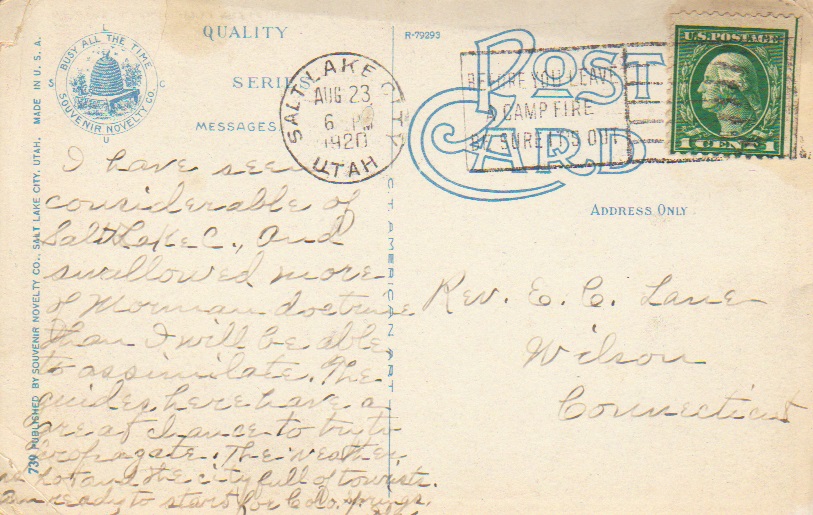 QUALITY
SERIES
MESSAGES
BUSY ALL THE TIME
SOUVENIR NOVELTY CO.
S L C U
739 PUBLISHED BY SOUVENIR NOVELTY CO., SALT LAKE CITY, UTAH. MADE IN U. S. A.
R-79293
POST CARD
ADDRESS ONLY
CT AMERICAN ART
SALT LAKE CITY
AUG 23
6 PM
1920
UTAH
BEFORE YOU LEAVE
A CAMP FIRE
BE SURE IT'S OUT
U.S. POSTAGE
1 CENT 1
I have seen
considerable of
Salt Lake C., and
swallowed more
of Morman doctrine
than I will be able
to assimilate. The
guides here have a
great chance to try to
propagate. The weather
is hot and the city full of tourists.
Am ready to start for Colo. Springs.
Rev. E. C. Lane
Wilson
Connecticut